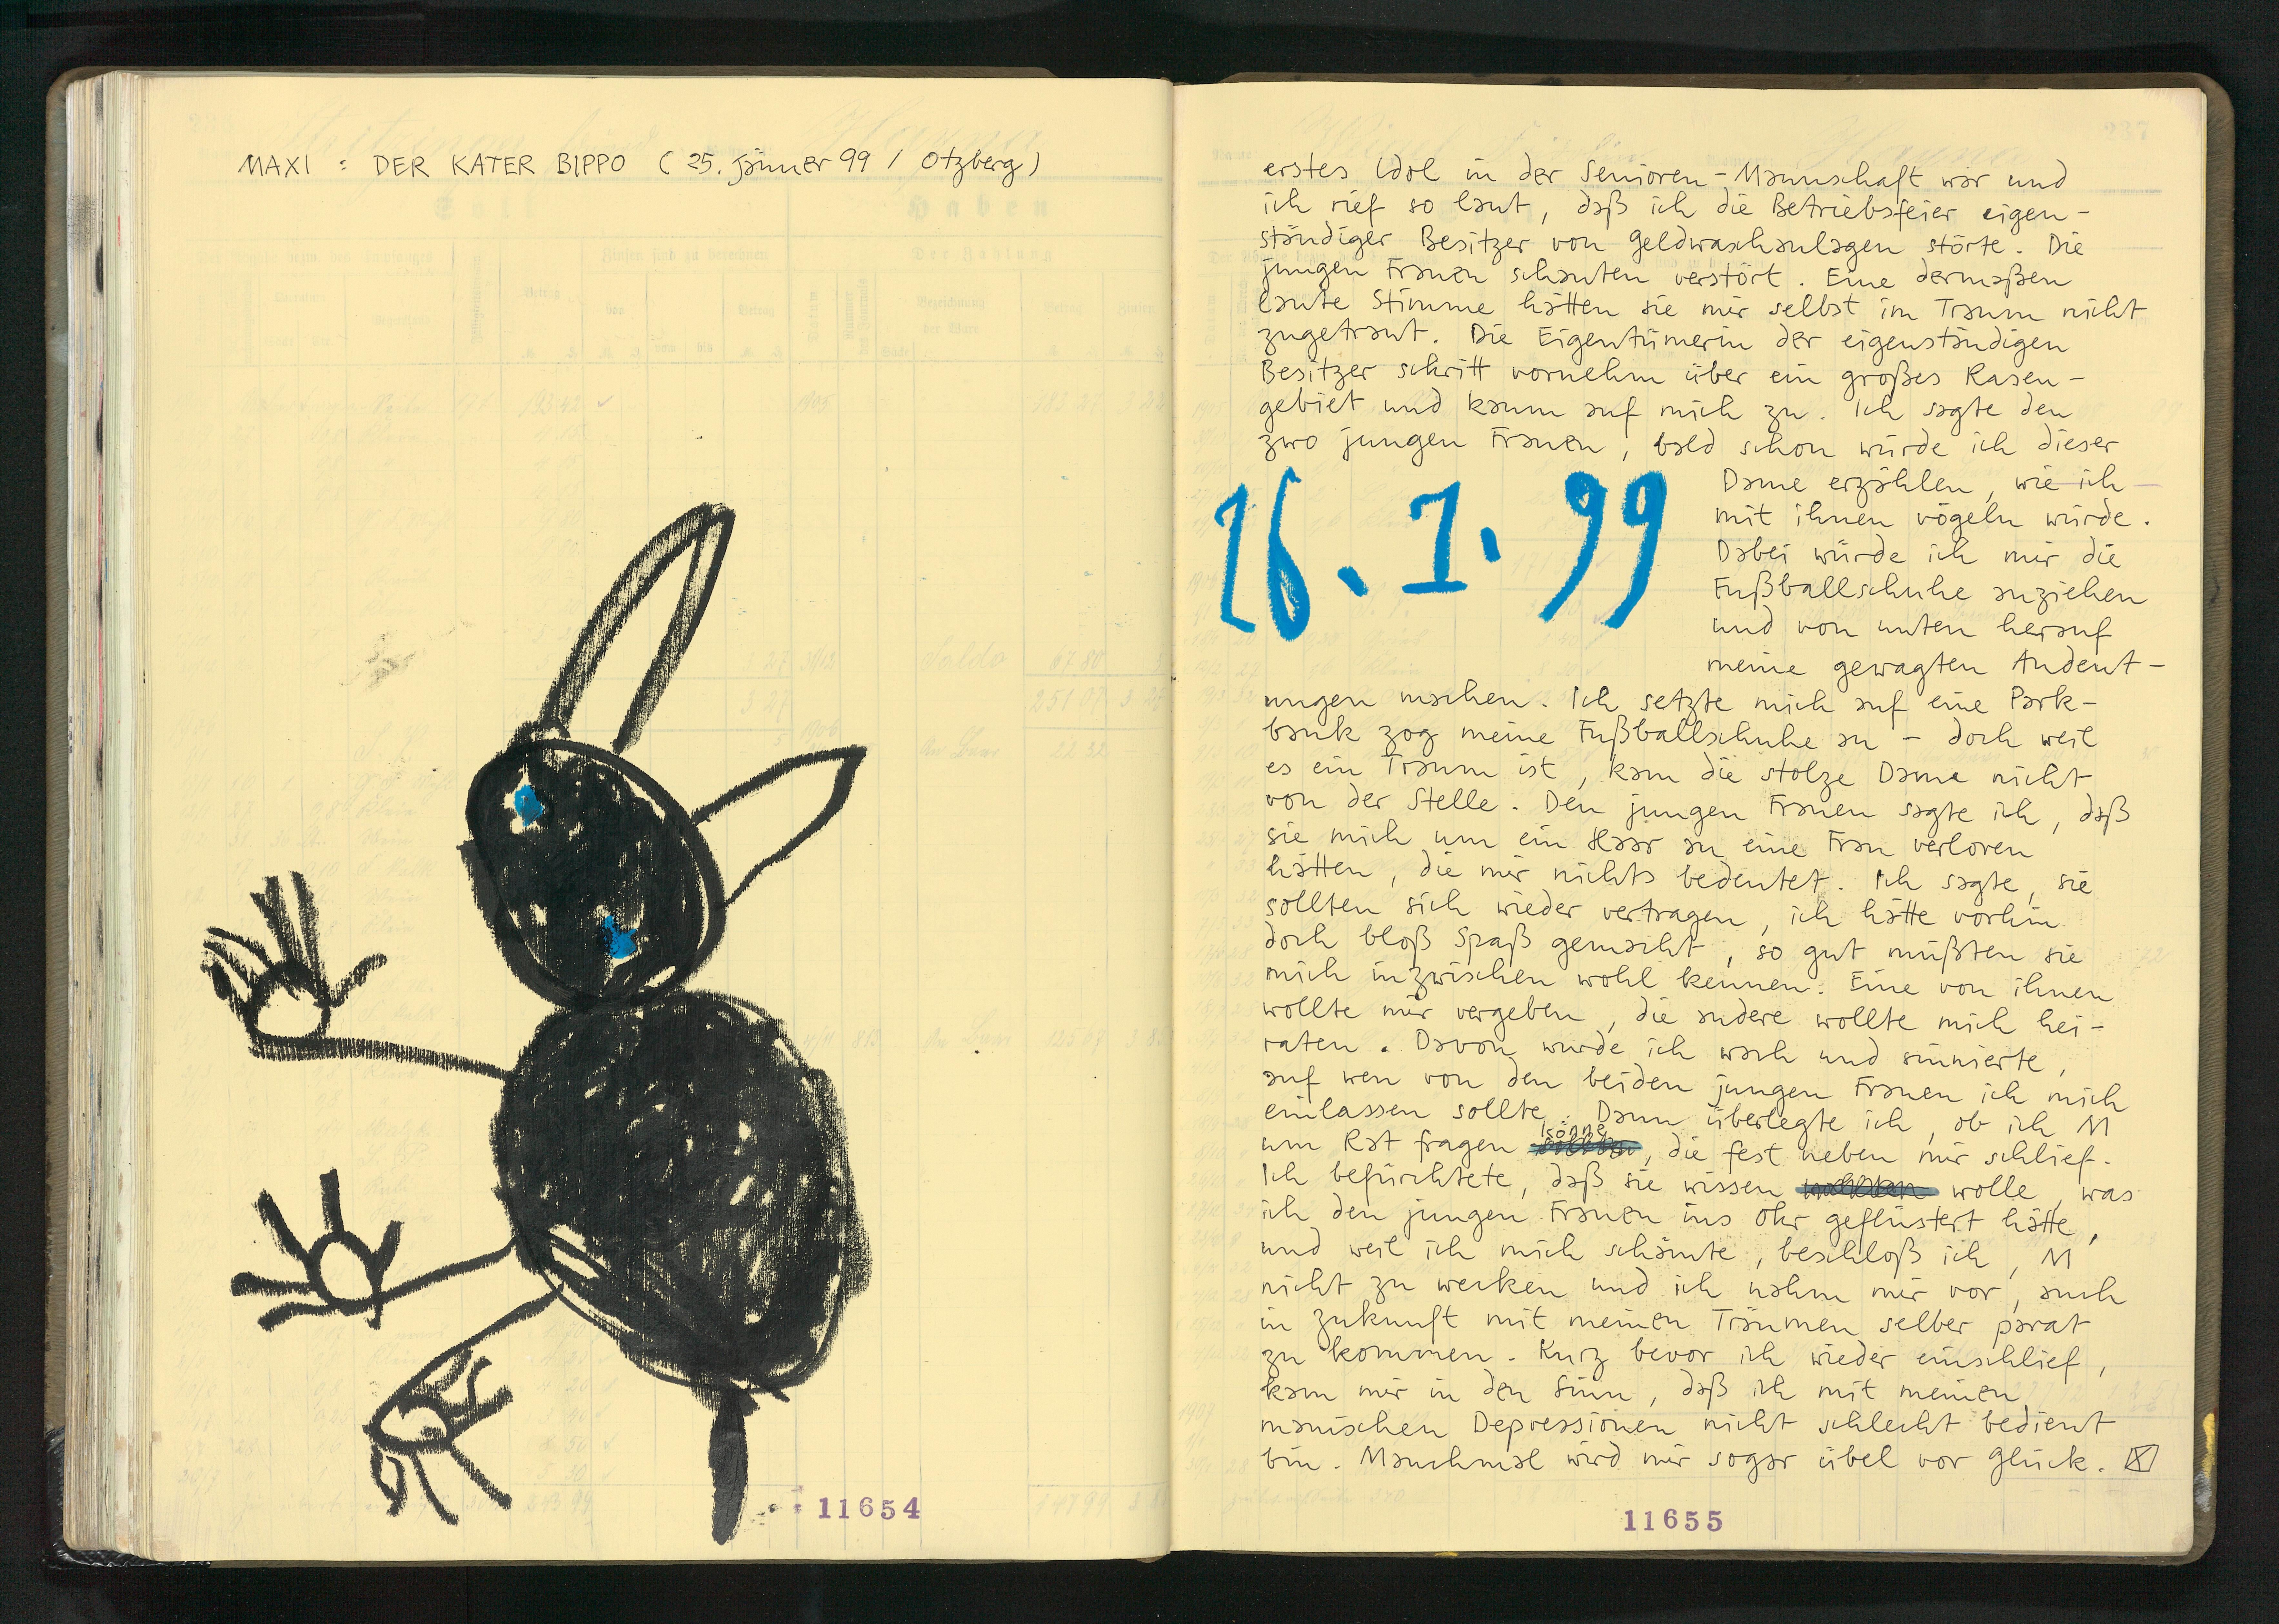 MAXI : DER KATER BIPPO ( 25. Jänner 99 / Otzberg )
Soll
Haben
Zinsen sind zu berechnen
Der Zahlung
Betrag
Bezeichnung
der Ware
Betrag
Saldo
11654
237
erstes Idol in der Senioren-Mannschaft war und
ich rief so laut, daß ich die Betriebsfeier eigen-
ständiger Besitzer von Geldwaschanlagen störte. Die
jungen Frauen schauten verstört. Eine dermaßen
laute Stimme hätten sie mir selbst im Traum nicht
zugetraut. Die Eigentümerin der eigenständigen
Besitzer schritt vornehm über ein großes Rasen-
gebiet und kaum auf mich zu. Ich sagte den
zwo jungen Frauen, bald schon würde ich dieser
26. 1. 99
Dame erzählen, wie ich
mit ihnen vögeln würde.
Dabei würde ich mir die
Fußballschuhe anziehen
und von unten herauf
meine gewagten Andeut-
ungen machen. Ich setzte mich auf eine Park-
bank zog meine Fußballschuhe an - doch weil
es ein Traum ist, kam die stolze Dame nicht
von der Stelle. Den jungen Frauen sagte ich, daß
sie mich um ein Haar an eine Frau verloren
hätten, die mir nichts bedeutet. Ich sagte, sie
sollten sich wieder vertragen, ich hätte vorhin
doch bloß Spaß gemacht, so gut müßten sie
mich inzwischen wohl kennen. Eine von ihnen
wollte mir vergeben, die andere wollte mich hei-
raten. Davon wurde ich wach und sinnierte,
auf wen von den beiden jungen Frauen ich mich
einlassen sollte. Dann überlegte ich, ob ich M
um Rat fragen könne, die fest neben mir schlief.
Ich befürchtete, daß sie wissen wolle, was
ich den jungen Frauen ins Ohr geflüstert hätte,
und weil ich mich schämte, beschloß ich, M
nicht zu wecken und ich nahm mir vor, auch
in Zukunft mit meinen Träumen selber parat
zu kommen. Kurz bevor ich wieder einschlief,
kam mir in den Sinn, daß ich mit meinen
manischen Depressionen nicht schlecht bedient
bin. Manchmal wird mir sogar übel vor Glück.
11655